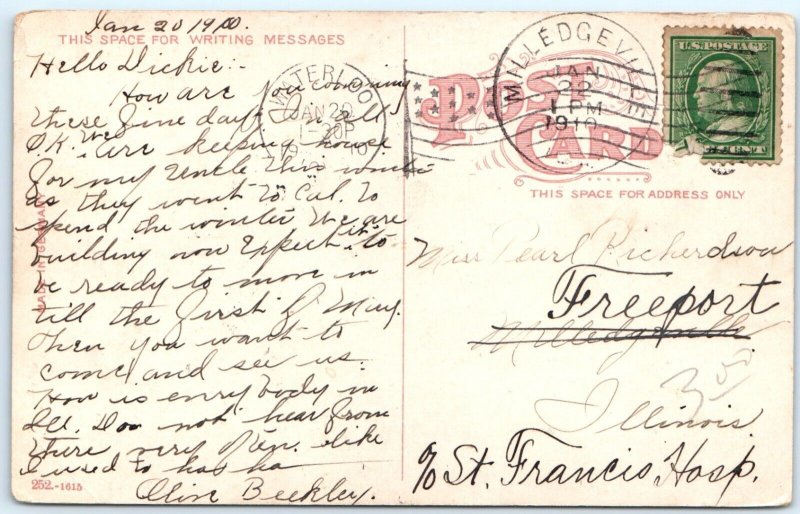 Jan 20 1910.
THIS SPACE FOR WRITING MESSAGES
Hello Dickie:-
How are you coming
these fine days. Well
O.K. We are keeping house
for my Uncle this winter
as they went to Cal. to
spend the winter We are
building now Expect it to
be ready to move in
till the first of May.
Then you want to
come and see us.
How is everybody in
Ill. Do not hear from
there very often like
I used to ha ha
Olive Beekley.
252.-1615
MADE IN GERMANY
WATERLOO
JAN 20
1910
POST CARD
THIS SPACE FOR ADDRESS ONLY
MILLEDGEVILLE
JAN
22
1 PM
1910
U.S. POSTAGE
Miss Pearl Richerdson
Freeport
Milledgeville
Illinois
c/o St. Francis Hosp.